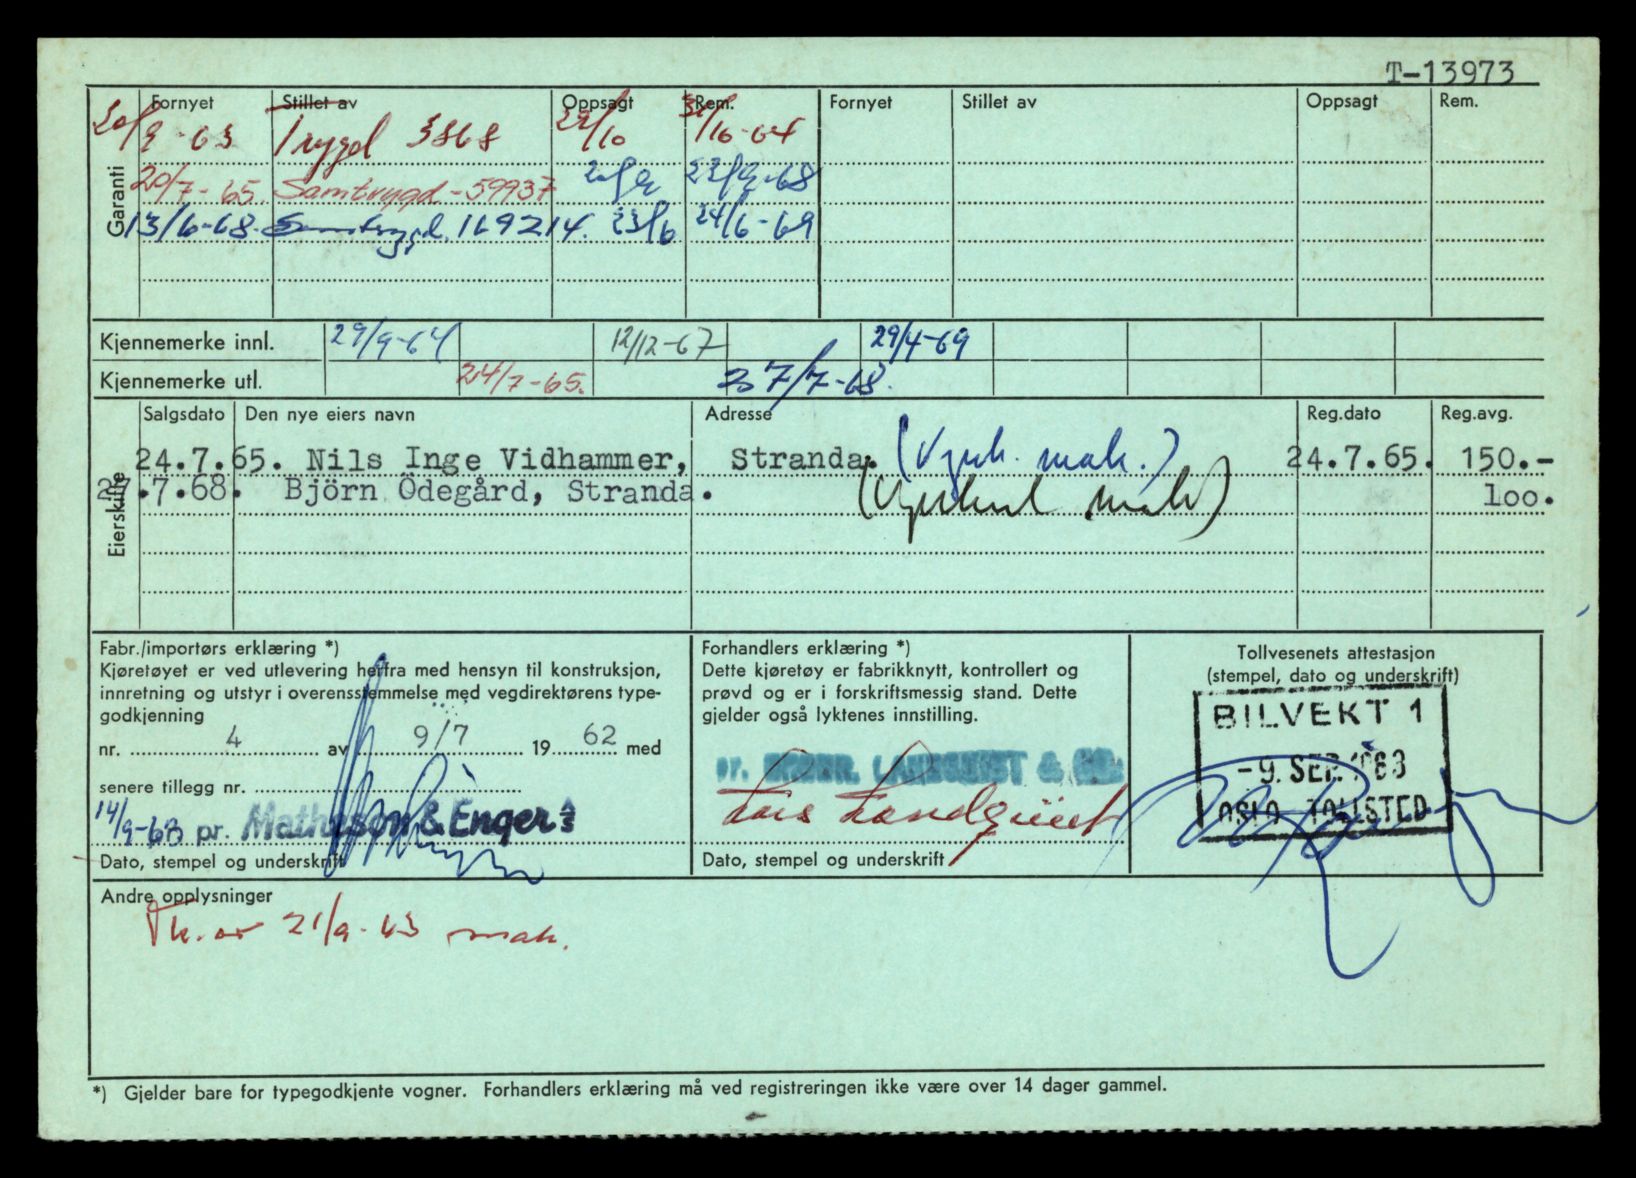 T-13973
Fornyet Stillet av Oppsagt Rem. Fornyet Stillet av Oppsagt Rem.
20/9-63 Trygd 3868 22/10 31/10-64
20/7-65. Samtrygd-59937 20/9 23/9-68
13/6-68. Samtrygd. 169214. 23/6 24/6-69
Garanti
Kjennemerke innl. 29/9-64 12/12-67 29/4-69
Kjennemerke utl. 24/7-65. 27/7-68.
Eierskifte
Salgsdato Den nye eiers navn Adresse Reg.dato Reg.avg.
24.7.65. Nils Inge Vidhammer, Stranda. mak.) 24.7.65. 150.-
27.7.68. Björn Ödegård, Stranda. 100.
Fabr./importørs erklæring *)
Kjøretøyet er ved utlevering herfra med hensyn til konstruksjon,
innretning og utstyr i overensstemmelse med vegdirektørens type-
godkjenning
nr. 4 av 9/7 19 62 med
senere tillegg nr.
14/9-63 pr. Matheson & Enger A/S
Dato, stempel og underskrift
Forhandlers erklæring *)
Dette kjøretøy er fabrikknytt, kontrollert og
prøvd og er i forskriftsmessig stand. Dette
gjelder også lyktenes innstilling.
pr. LANDQUIST & CO.
Lars Landquist
Dato, stempel og underskrift
Tollvesenets attestasjon
(stempel, dato og underskrift)
BILVEKT 1
-9. SEP. 1963
OSLO TOLLSTED
Andre opplysninger
21/9-63 mak.
*) Gjelder bare for typegodkjente vogner. Forhandlers erklæring må ved registreringen ikke være over 14 dager gammel.